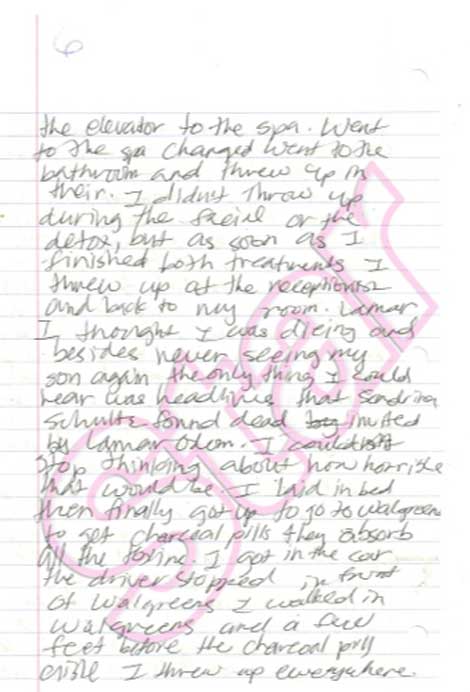 6
the elevator to the spa. Went
to the spa changed went to the
bathroom and threw up in
their. I didnt throw up
during the facial or the
detox, but as soon as I
finished both treatments I
threw up at the receptionist
and back to my room. Lamar
I thought I was dieing and
besides never seeing my
son again the only thing I could
hear was headlines that Sandrina
Schultz found dead invited
by Lamar Odom. I couldnt
stop thinking about how horrible
that would be I laid in bed
then finally got up to go to walgreens
to get charcoal pills they absorb
all the toxins I got in the car
the driver stopped in front
of walgreens I walked in
walgreens and a few
feet before the charcoal pill
I threw up everywhere.
Star